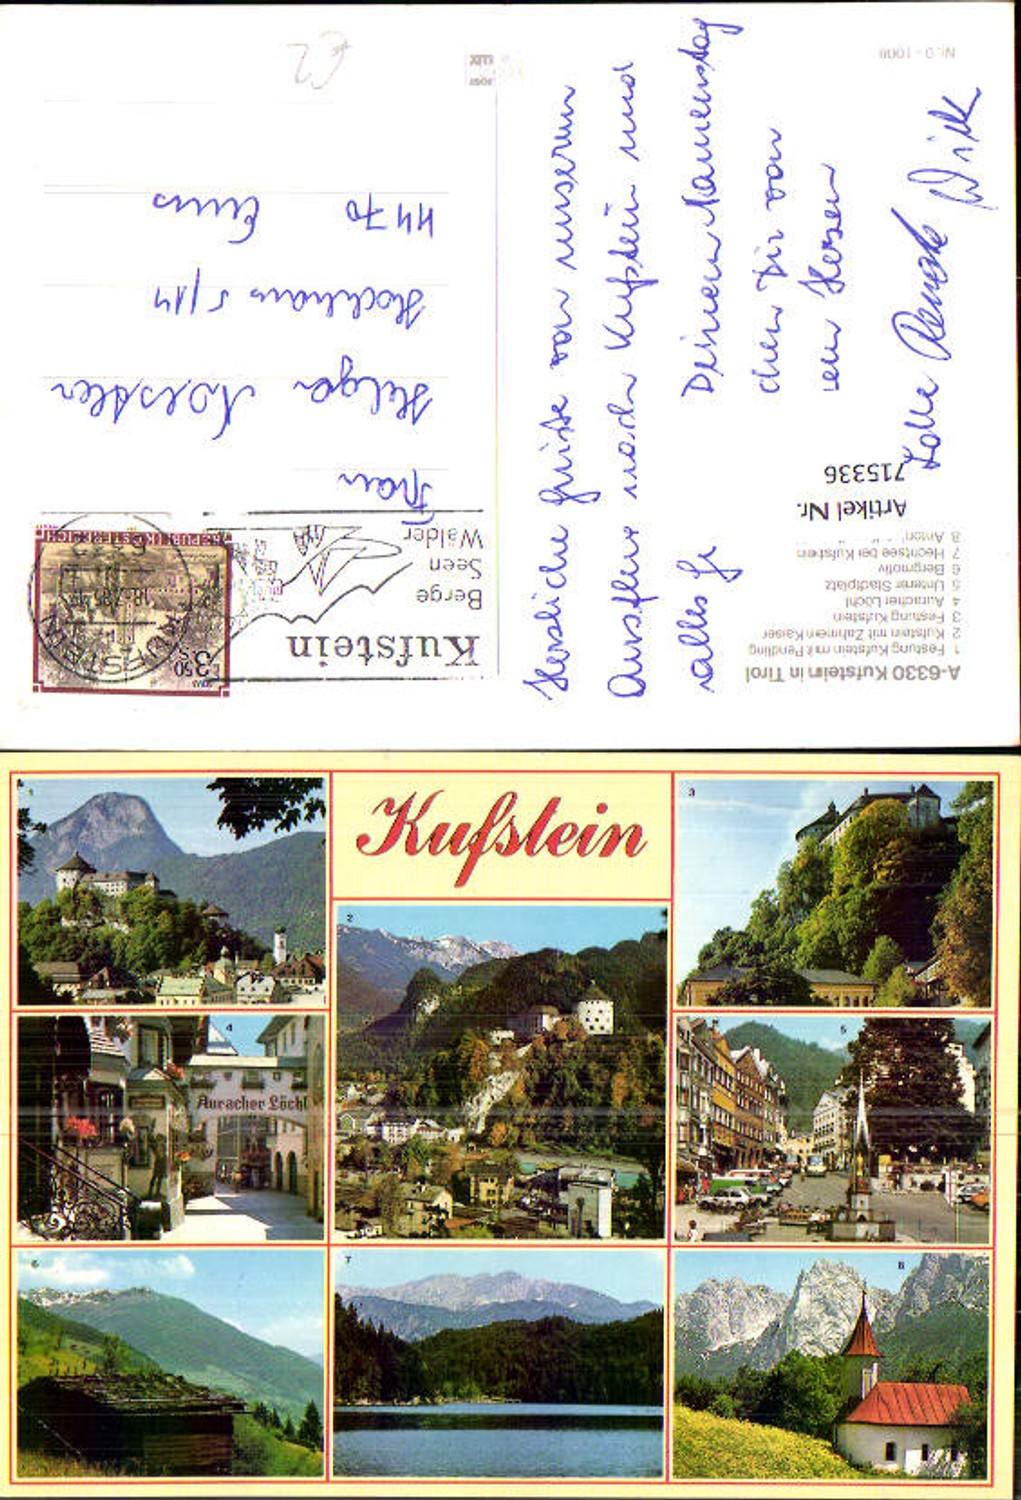 Herzliche Grüße von unserem
Ausflug nach Kufstein und
alles Gu Deinem Namenstag
chen Dir von
em Herzen
Renate Dirk
Frau
Helga
Hochhaus 5/14
4470 Enns
Kufstein
Berge
Seen
Wälder
REPUBLIK ÖSTERREICH
3.50
KUFSTEIN
A-6330 Kufstein in Tirol
1 Festung Kufstein mit Pendling
2 Kufstein mit Zahmem Kaiser
3 Festung Kufstein
4 Auracher Löchl
5 Unterer Stadtplatz
6 Bergmotiv
7 Hechtsee bei Kufstein
8 Anton
Artikel Nr.
715336
€2
Kufstein
1
2
3
4
Auracher Löchl
5
6
7
8